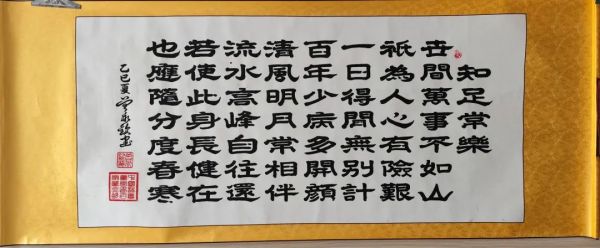 知足常樂
世間萬事不如山
祇為人心有險艱
一日得閒無別計
百年少病多開顏
清風明月常相伴
流水高峰自往還
若使此身長健在
也應隨分度春寒
乙巳夏